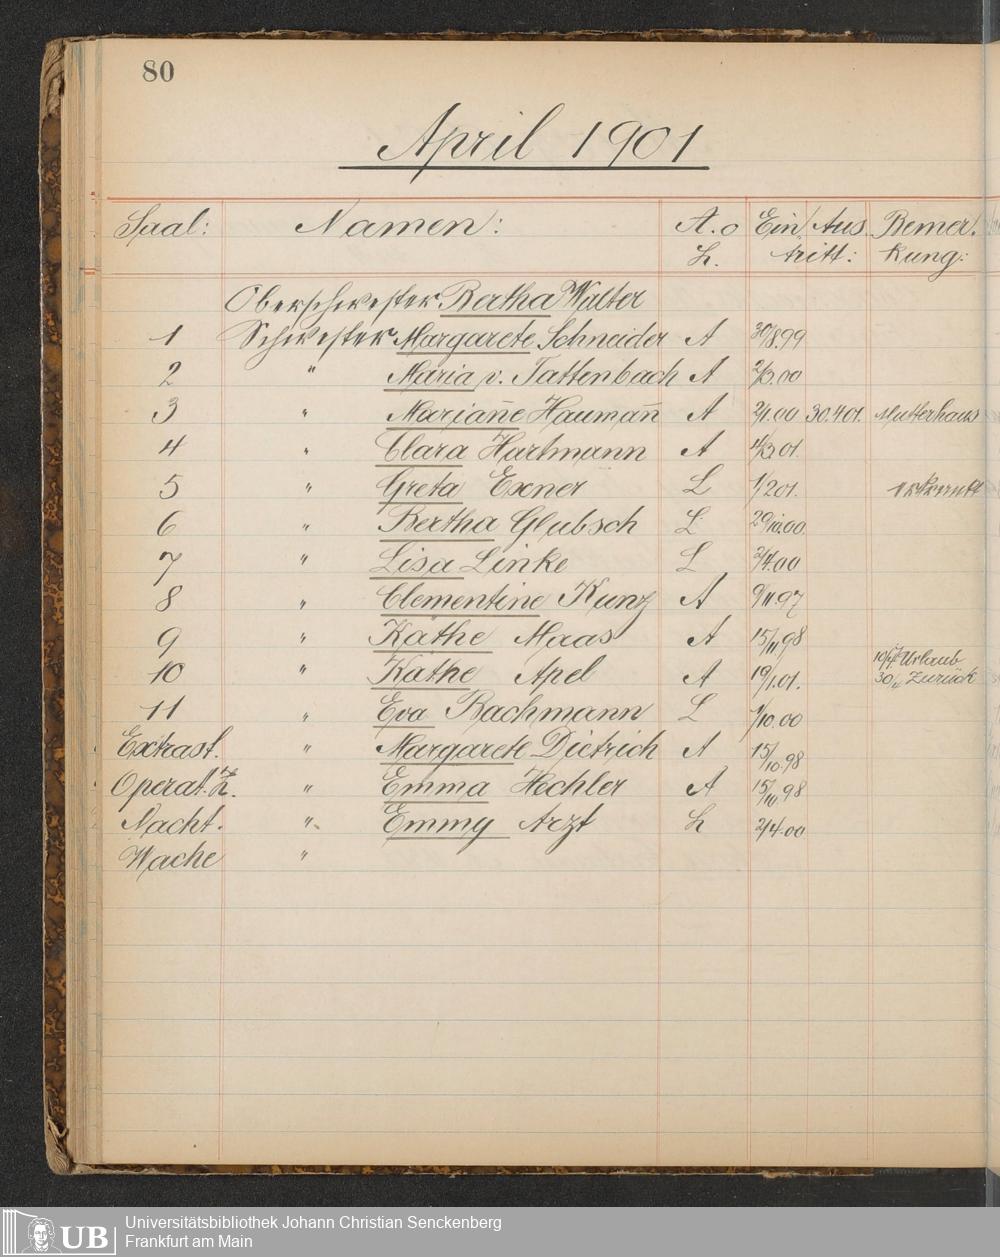 80
April 1901
Saal: Namen: A. o Ein Aus Bemer.
L. tritt: kung:
Oberschwester Bertha Walter
1 Schwester Margarete Schneider A 30/8.99
2 " Maria v. Tattenbach A 2/3.00
3 " Mariañe Haumañ A 2/1.00 30.4.01. Mutterhaus
4 " Clara Hartmann A 4/3.01.
5 " Greta Exner L 1/2 01. erkrankt
6 " Bertha Glubsch L 29/10.00.
7 " Lisa Linke L 2/4.00
8 " Clementine Kunz A 9/11.97
9 " Käthe Maas A 15/11.98
10/4 Urlaub
10 " Käthe Apel A 19/1.01. 30/4 Zurück
11 " Eva Bachmann L 1/10.00
Extrast. " Margarete Dietrich A 15/10.98
Operat. Z. " Emma Hechler A 15/10.98
Nacht. " Emmy Arzt L 2/4.00
Wache "
UB
Universitätsbibliothek Johann Christian Senckenberg
Frankfurt am Main